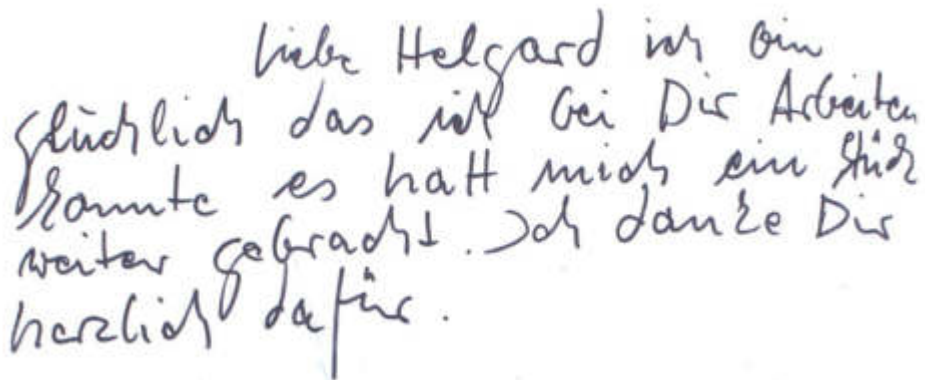 Liebe Helgard ich bin
glücklich das ich bei Dir Arbeiten
konnte es hatt mich ein Stück
weiter gebracht. Ich danke Dir
herzlich dafür.